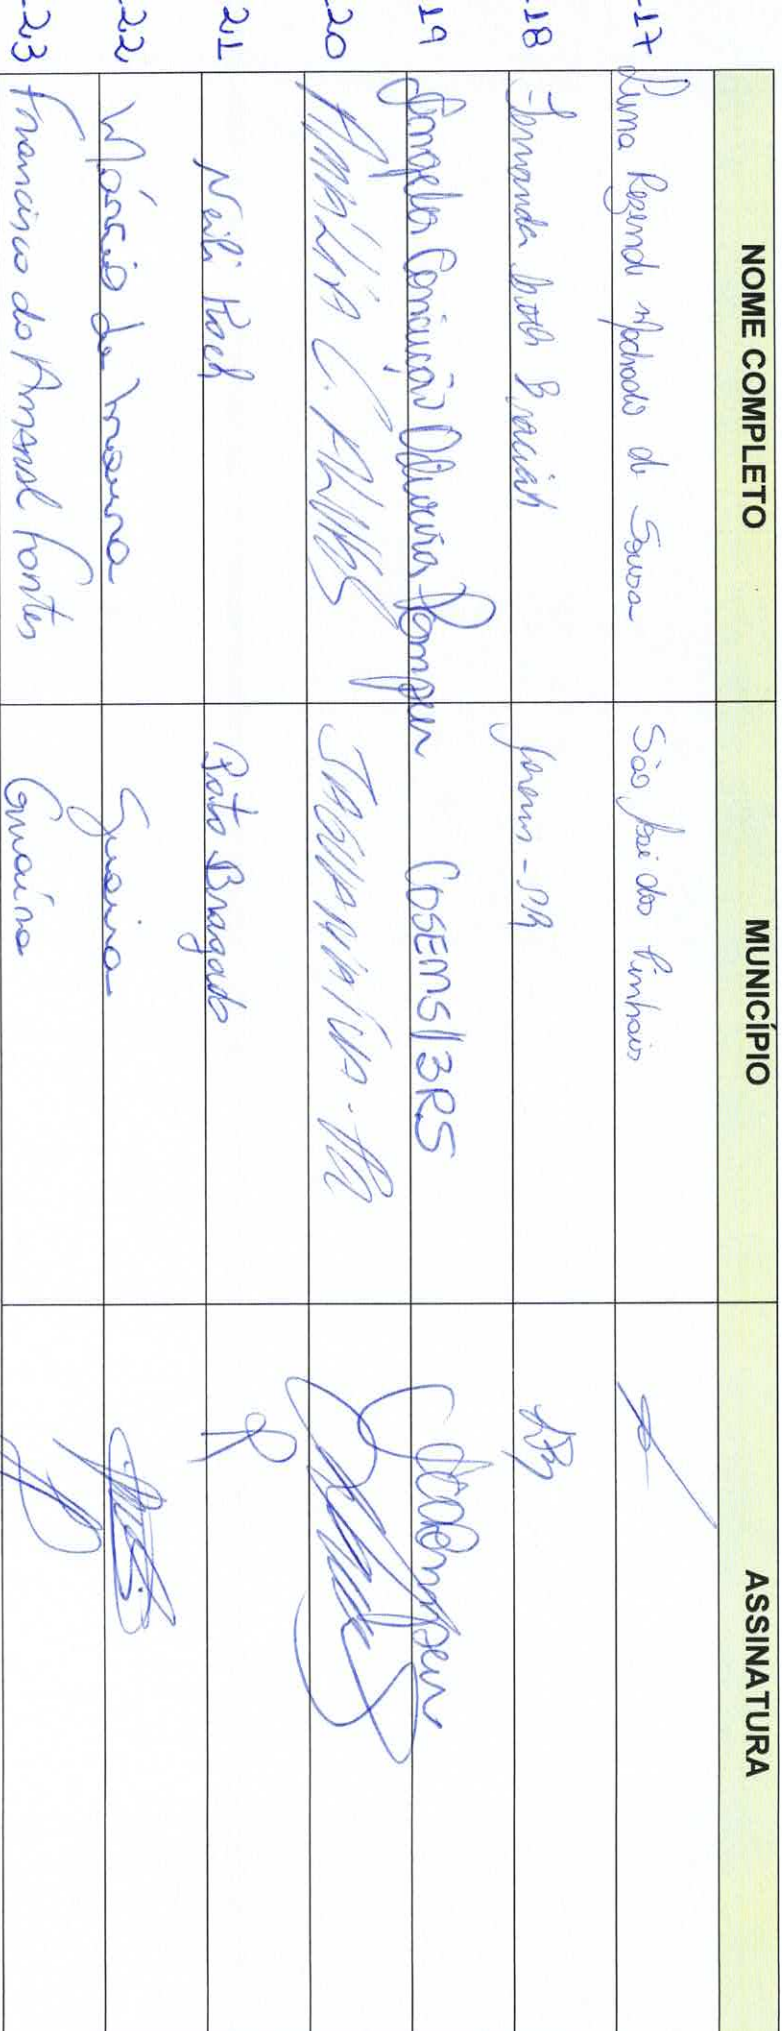 NOME COMPLETO MUNICÍPIO ASSINATURA
-17 Luma Rezende Machado de Sousa São José dos Pinhais
-18 Fernanda Braciah - PR
19 Angela Conceição Oliveira Pompeu COSEMS/3RS
-20 AMÁLIA C. ALVES JAGUARIAÍVA - PR
-21 Neili Koch Pato Bragado
-22 Márcio de Moura Guaíra
-23 Francisco do Amaral Fontes Guaíra